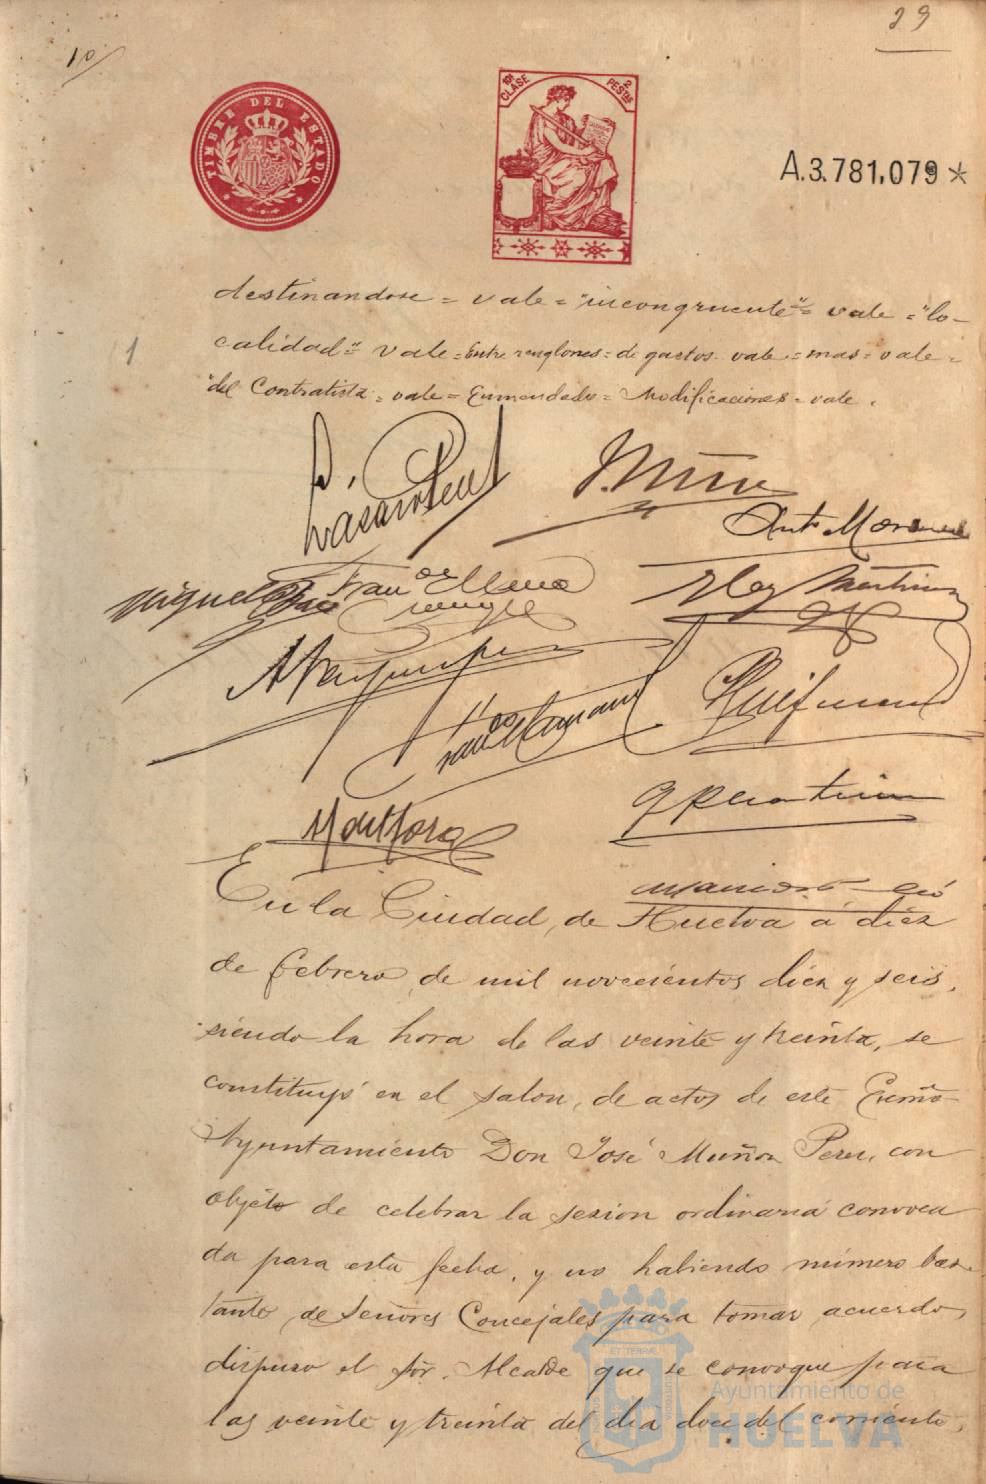 29
10
TIMBRE DEL ESTADO
10ª CLASE 2 PESTAS
A.3.781,079*
destinandose = vale = "incongruente" = vale = "lo-
1
calidad" = vale = Entre renglones = de gastos vale = mas = vale =
"del Contratista = vale = Enmendado = Modificaciones = vale.
Ant. Moreno
En la Ciudad, de Huelva á diez
de febrero, de mil novecientos diez y seis,
siendo la hora de las veinte y treinta, se
constituyó en el salon, de actos de este Excmo
Ayuntamiento Don José Muñoz Perez, con
objeto de celebrar la sesion ordinaria convoca
da para esta fecha, y no habiendo número bas-
tante, de Señores Concejales para tomar acuerdo,
dispuso el Sór. Alcalde que se convoque para
las veinte y treinta del dia doce del corriente,
Ayuntamiento de
HUELVA